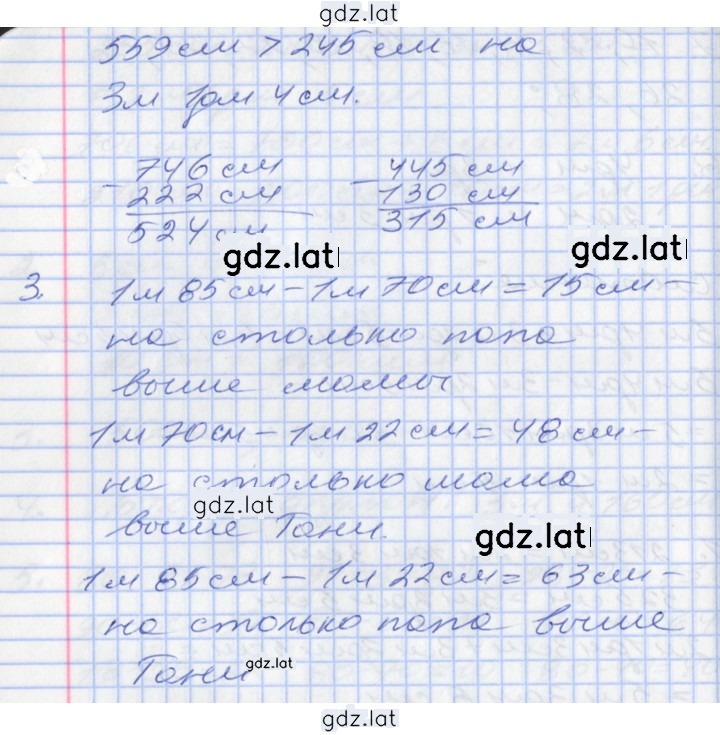 gdz.lat
559 см > 245 см на
3м 1дм 4см.
- 746 см - 445 см
222 см 130 см
524 см 315 см
gdz.lat gdz.lat
3. 1м 85см - 1м 70см = 15см -
на столько папа
выше мамы
1м 70см - 1м 22см = 48см -
на столько мама
gdz.lat
выше Тани. gdz.lat
1м 85см - 1м 22см = 63см -
на столько папа выше
Тани gdz.lat
gdz.lat